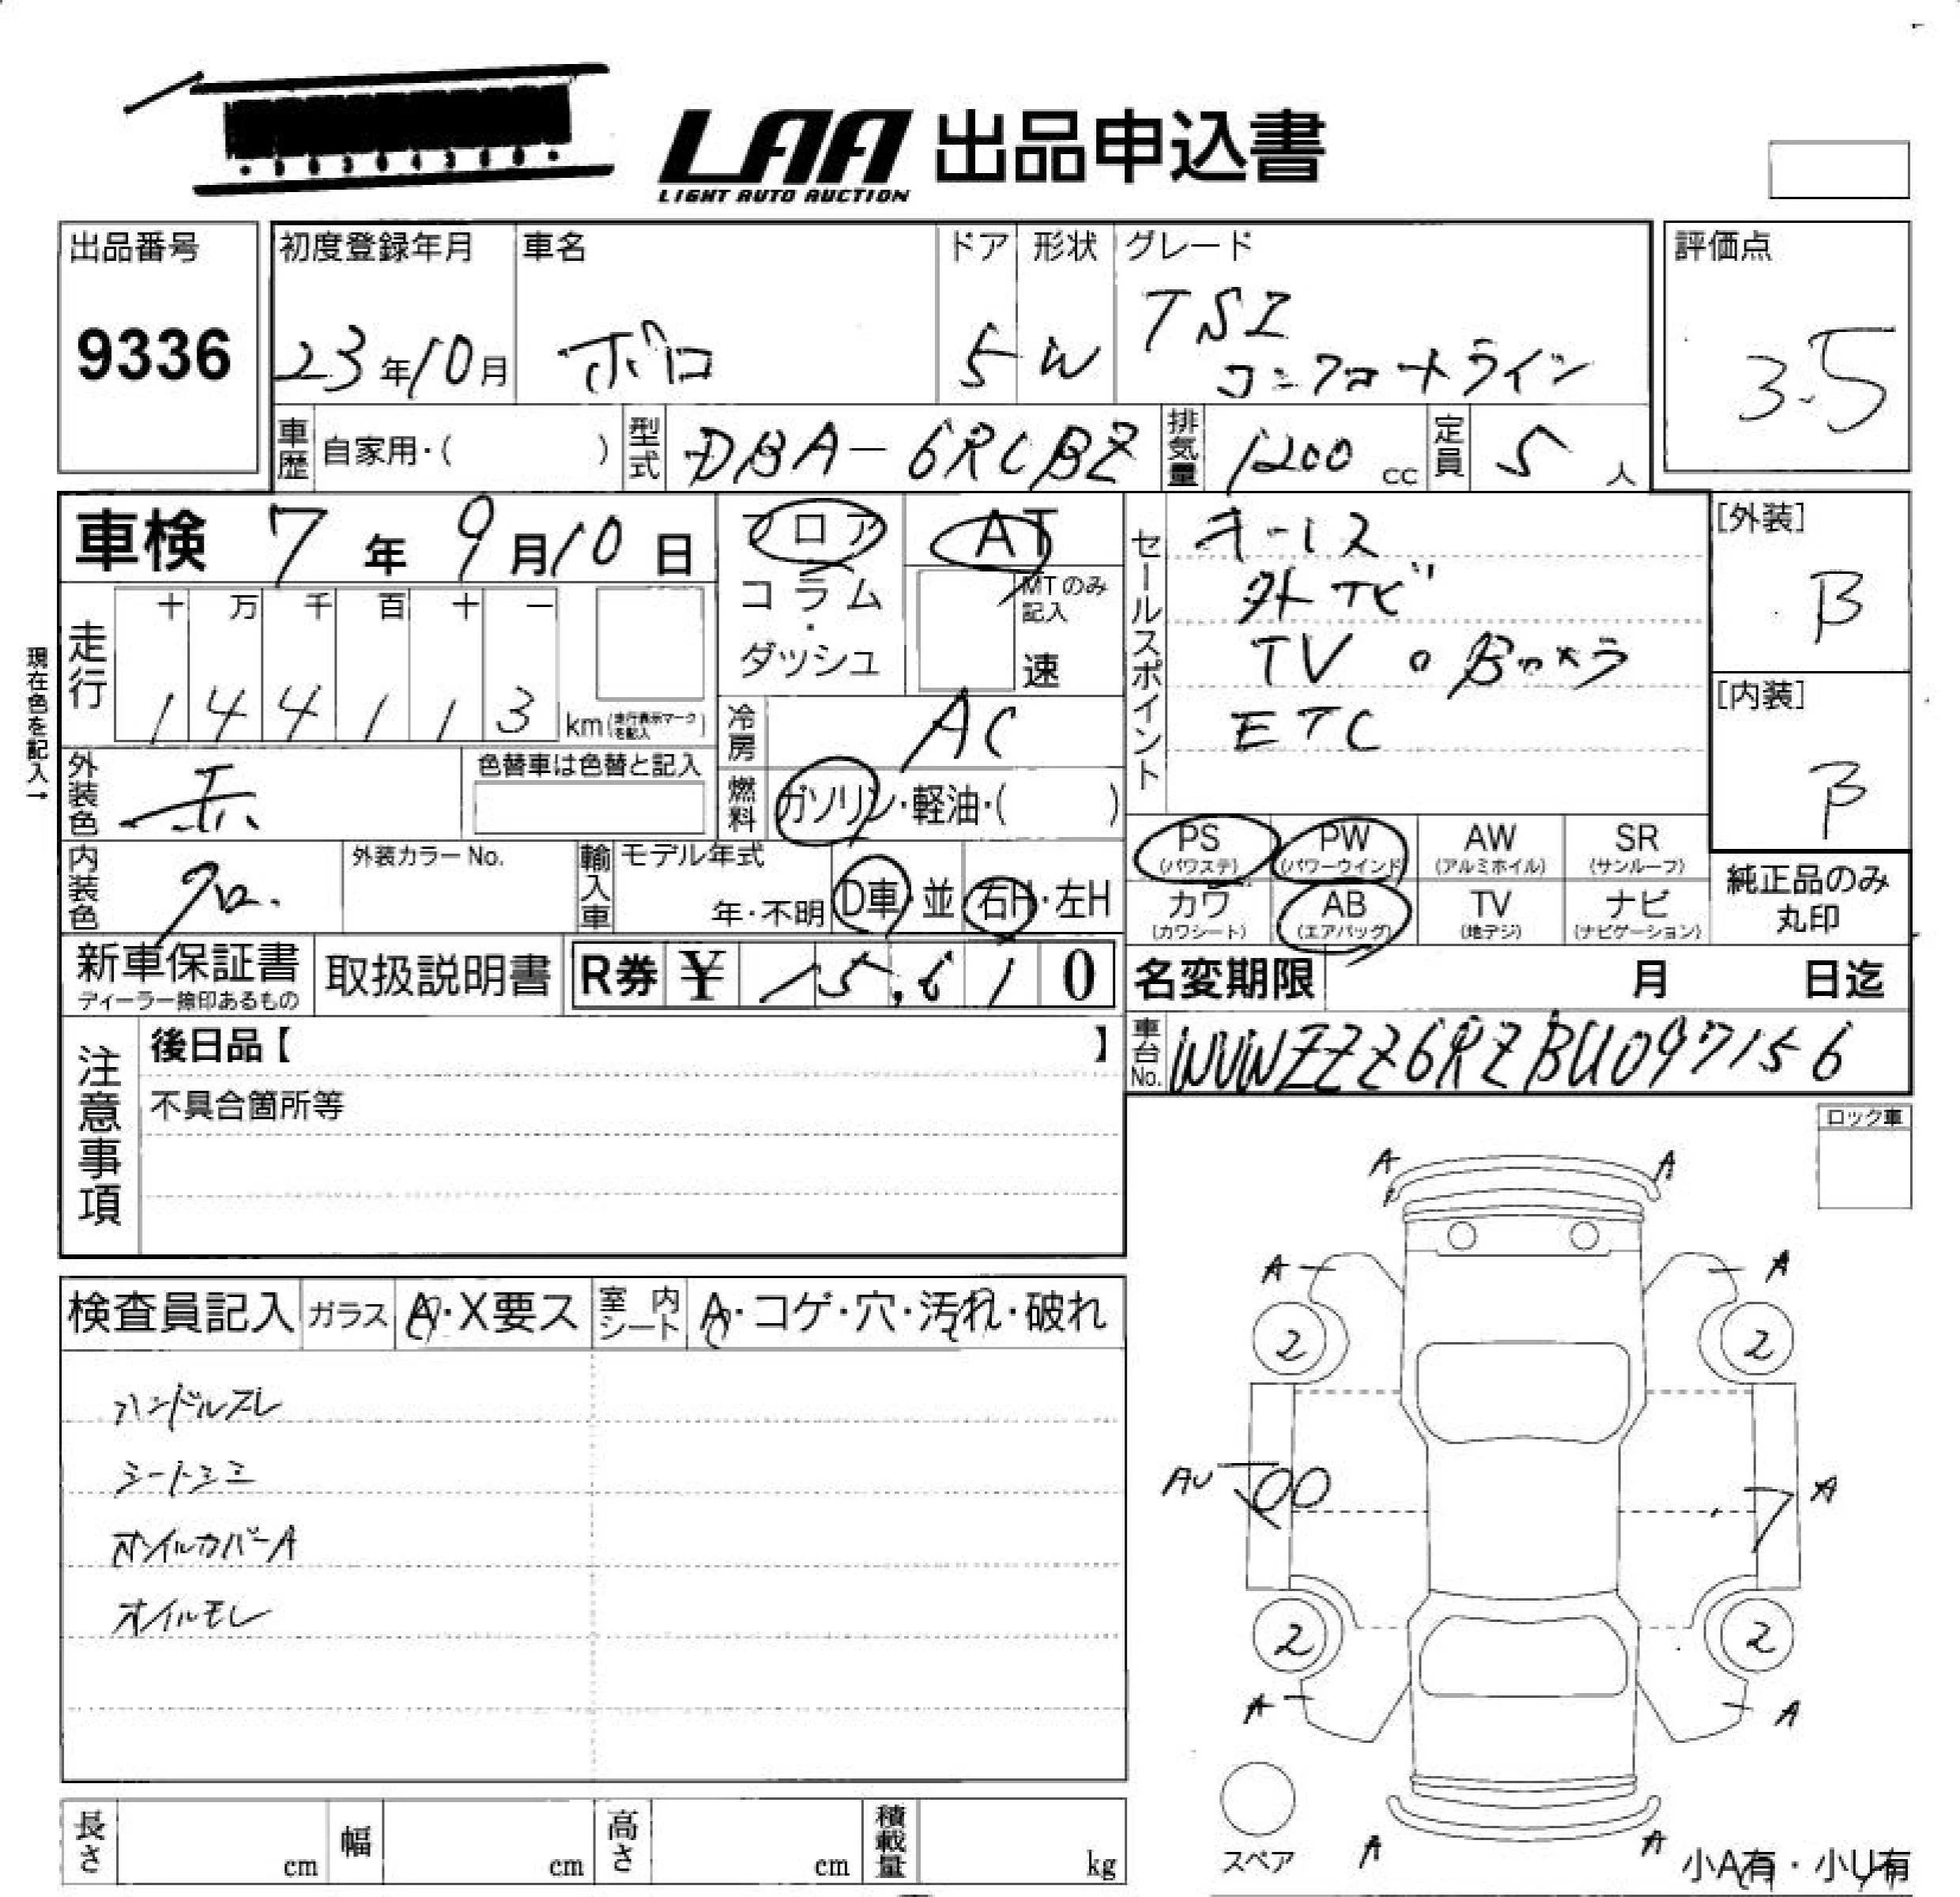 LAA 出品申込書
LIGHT AUTO AUCTION
出品番号
9336
初度登録年月
23年10月
車名
ポロ
ドア
5
形状
W
グレード
TSI
コンフォートライン
評価点
3.5
車歴 自家用・( )
型式 DBA-6RCBZ
排気量 1200 cc
定員 5 人
車検 7年9月10日
フロア
コラム
・
ダッシュ
AT
MTのみ
記入
速
セールスポイント
キー12
外ナビ
TV。Bカメラ
ETC
[外装]
B
[内装]
B
現在色を記入→
走行
十 万 千 百 十 一
1 4 4 1 1 3 km(走行表示マークを記入)
冷房 AC
外装色 赤
色替車は色替と記入
燃料 ガソリン・軽油・( )
内装色 クロ.
外装カラーNo.
輸入車
モデル年式
年・不明
D車・並
右H・左H
PS
(パワステ)
PW
(パワーウインド)
AW
(アルミホイル)
SR
(サンルーフ)
カワ
(カワシート)
AB
(エアバッグ)
TV
(地デジ)
ナビ
(ナビゲーション)
純正品のみ
丸印
新車保証書
ディーラー捺印あるもの
取扱説明書
R券 ¥ 15,610
名変期限 月 日迄
車台No. WVWZZZ6RZBU097156
注意事項
後日品【 】
不具合箇所等
ロック車
検査員記入
ガラス A・X要ス
室内シート A・コゲ・穴・汚れ・破れ
ハンドルスレ
シートシミ
オイルカバーA
オイルモレ
A A
A A
2 2
AU A
2 2
A A
スペア
A A
小A有・小U有
長さ cm
幅 cm
高さ cm
積載量 kg